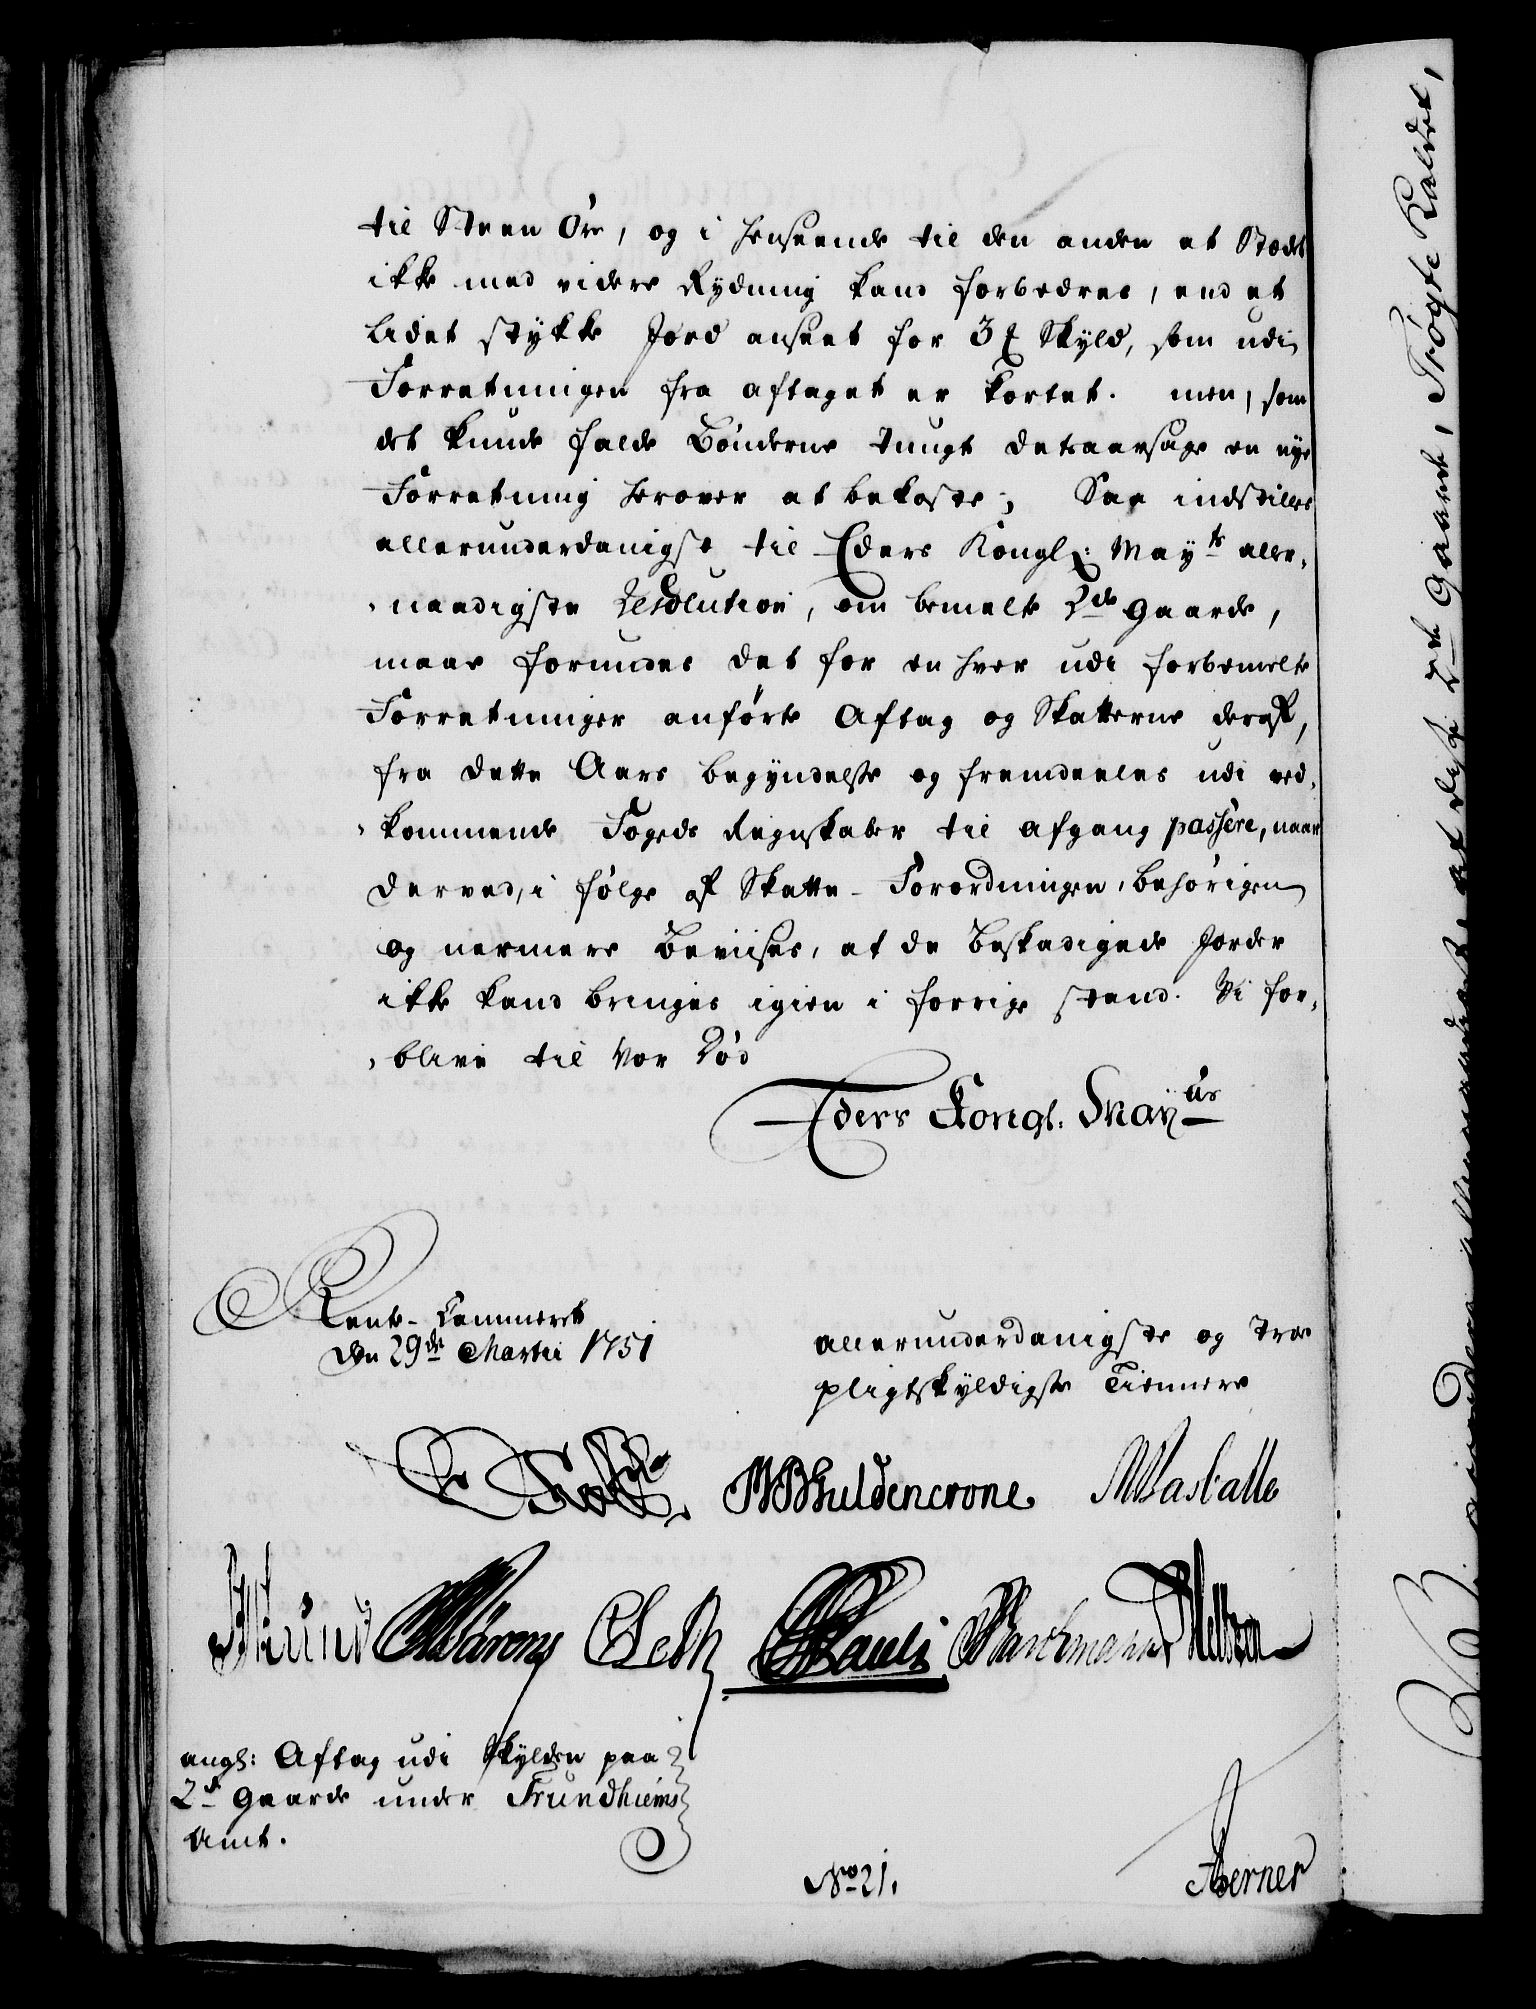 til Steen Øre, og i henseende til den anden at Stædet
ikke med videre Rydning kand forbedres, end et
lidet stykke Jord anseet for 3 Skyld, som udi
Forretningen fra aftaget er kortet. men, som
det kunde falde Bønderne tungt detaarsage en nye
Forretning herover at bekoste; Saa indstilles
allerunderdanigst til Eders Kongl: May.ts aller-
naadigste Resolution, om bemelte 2de Gaarde,
maae forundes det for en hver udi forbemelte
Forretninger anførte Aftag og Skatterne deraf,
fra dette Aars begyndelse og fremdeeles udi ved-
kommende Fogeds Regnskaber til afgang passere, naar
derved, i følge af Skatte-Forordningen, behørigen
og nærmere beviises, at de beskadigede Jorder
ikke kand bringes igien i forrige stand. Vi for-
blive til vor Død
Eders Kongl. May.ts
Rente-Cammeret
den 29de Martii 1751
allerunderdanigste og troe
pligtskyldigste Tiennere
Guldencrone
angl: Aftag udi Skylden paa
2de Gaarde under Trundhiems
Amt.
No 21.
Berner
2de Gaarde, Trøgte Kaldet,